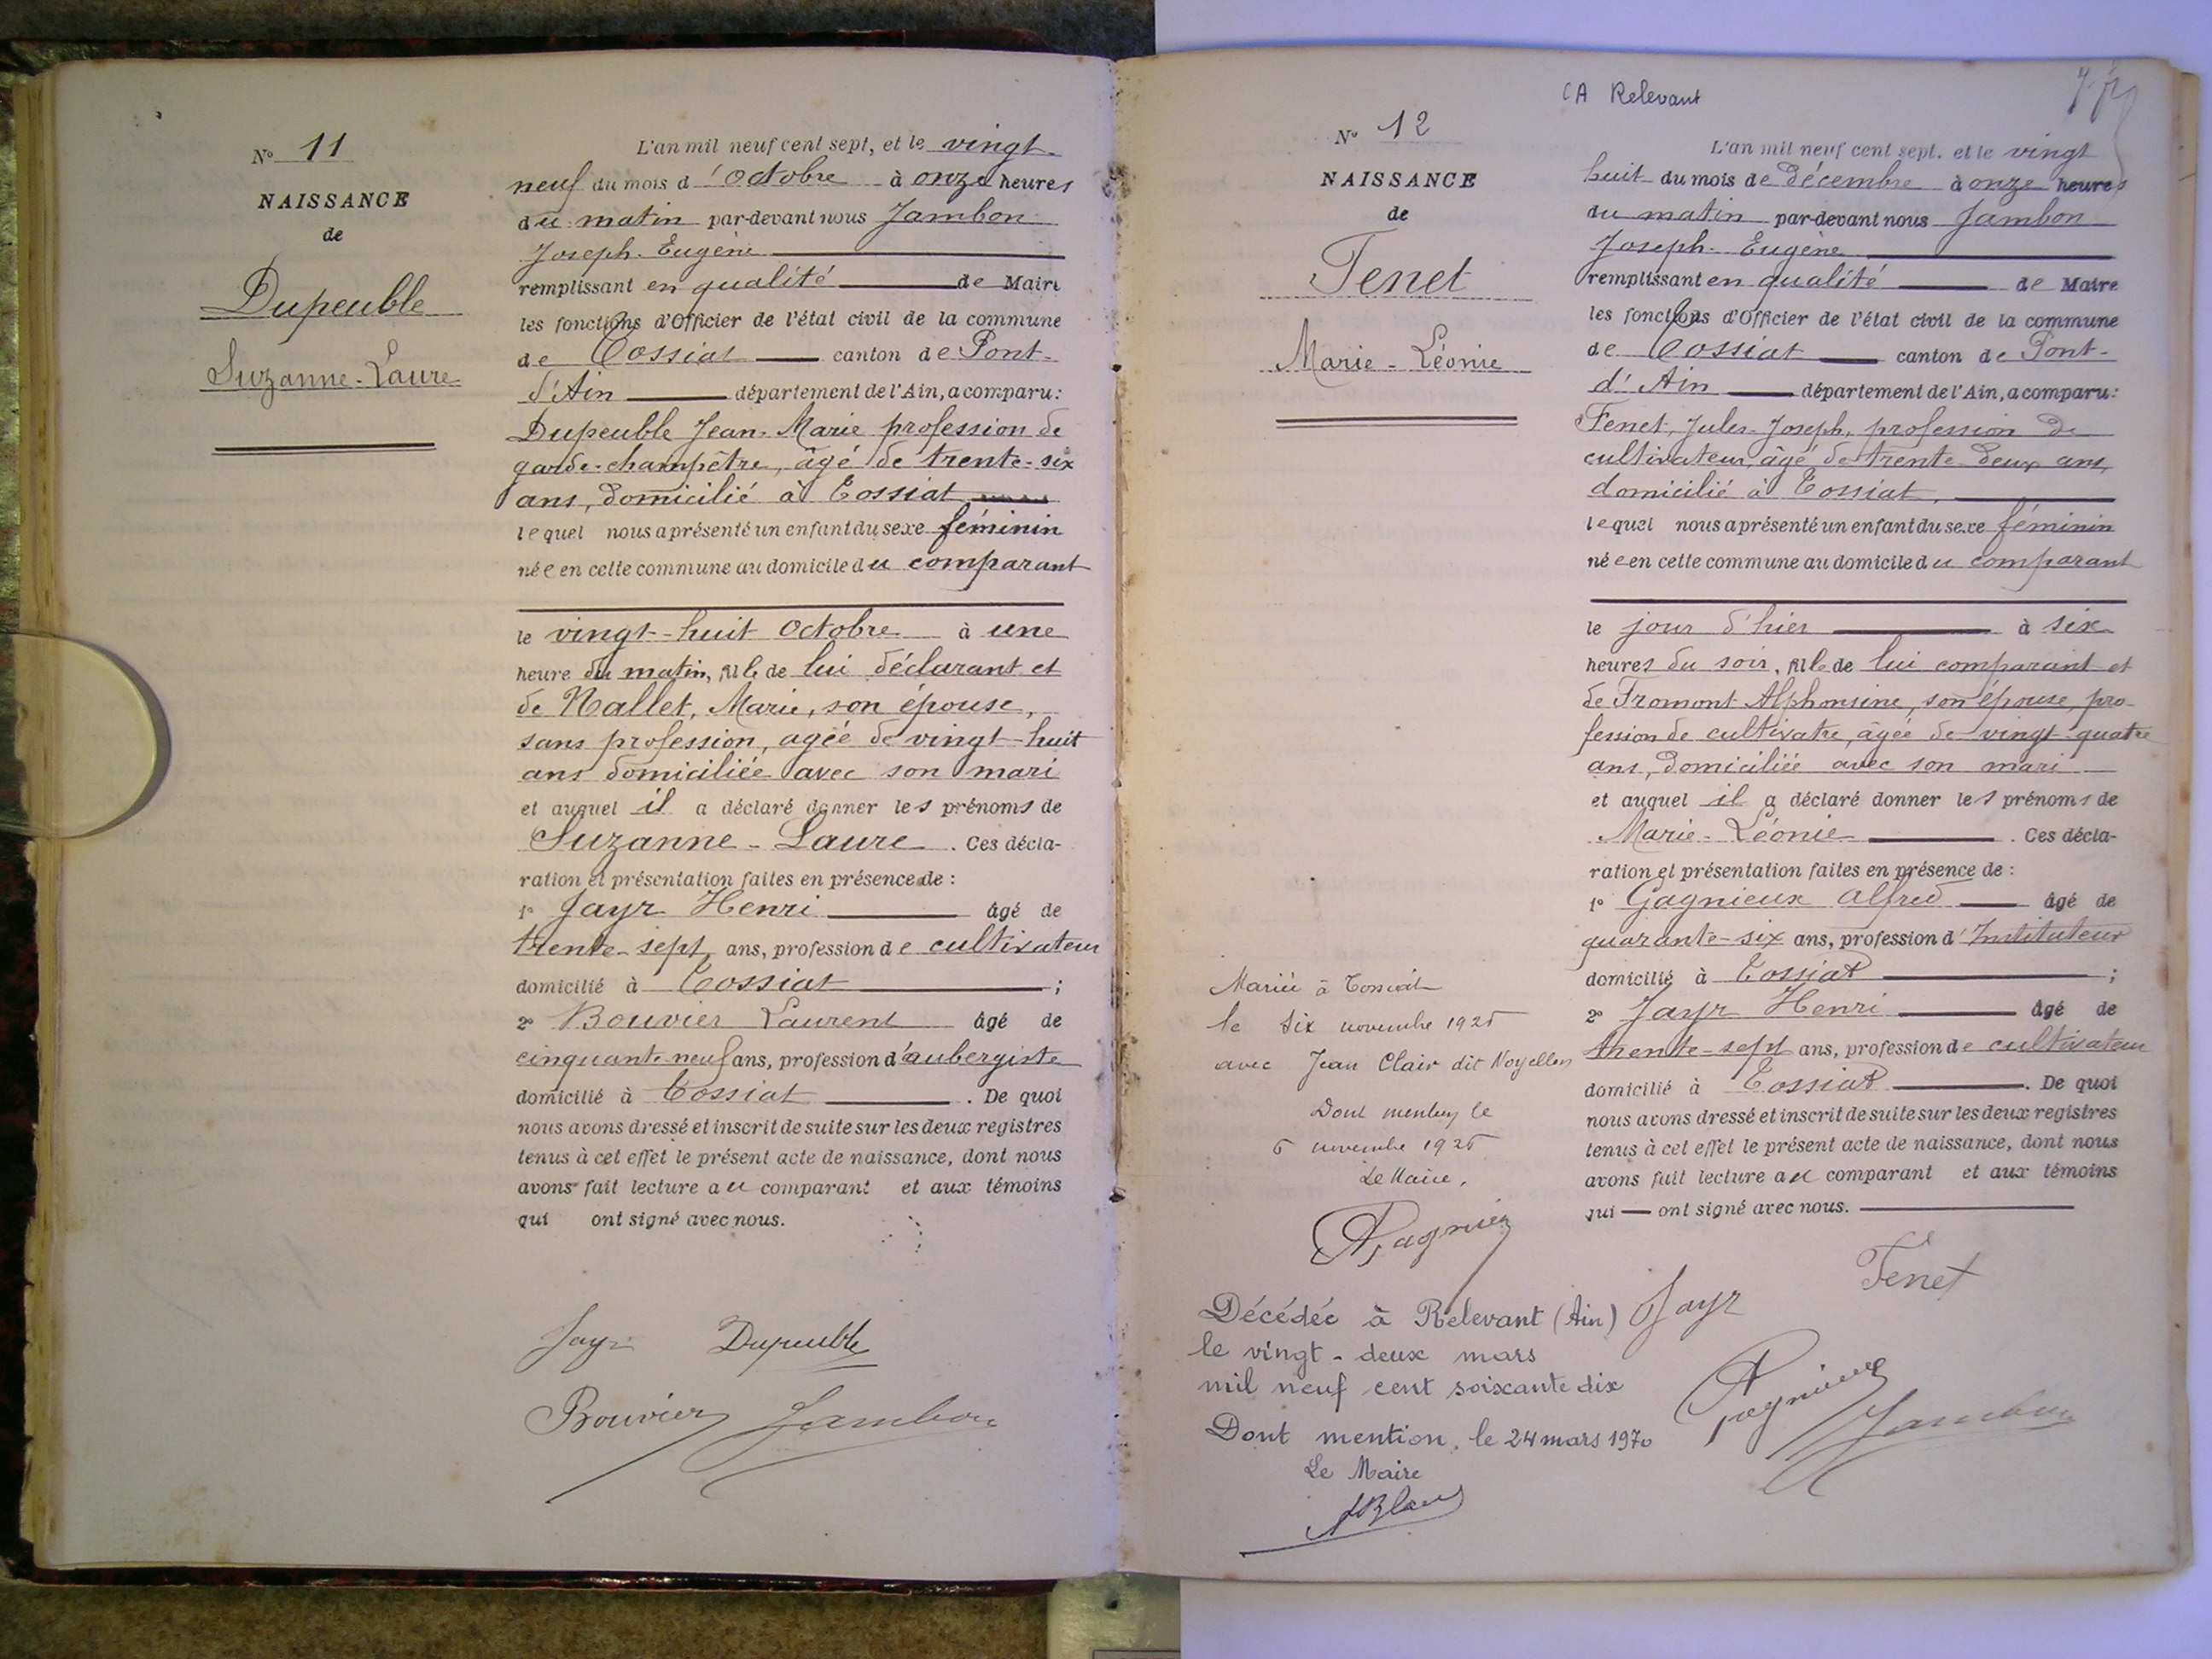 N° 11
NAISSANCE
de
Dupeuble
Suzanne-Laure
L'an mil neuf cent sept, et le vingt-
neuf du mois d'Octobre à onze heures
du matin par-devant nous Jambon
Joseph-Eugène
remplissant en qualité de Maire
les fonctions d'Officier de l'état civil de la commune
de Tossiat canton de Pont-
d'Ain département de l'Ain, a comparu:
Dupeuble Jean-Marie profession de
garde-champêtre, âgé de trente-six
ans, domicilié à Tossiat
lequel nous a présenté un enfant du sexe féminin
née en cette commune au domicile du comparant
le vingt-huit Octobre à une
heure du matin, fille de lui déclarant et
de Nallet, Marie, son épouse,
sans profession, agée de vingt-huit
ans domiciliée avec son mari
et auquel il a déclaré donner les prénoms de
Suzanne-Laure. Ces décla-
ration et présentation faites en présence de :
1° Jayr Henri âgé de
trente-sept ans, profession de cultivateur
domicilié à Tossiat ;
2° Bouvier Laurent âgé de
cinquante-neuf ans, profession d'aubergiste
domicilié à Tossiat . De quoi
nous avons dressé et inscrit de suite sur les deux registres
tenus à cet effet le présent acte de naissance, dont nous
avons fait lecture au comparant et aux témoins
qui ont signé avec nous.
Jayr Dupeuble
Bouvier Jambon
CA Relevant
N° 12
NAISSANCE
de
Tenet
Marie-Léonie
L'an mil neuf cent sept, et le vingt
huit du mois de décembre à onze heures
du matin par-devant nous Jambon
Joseph-Eugène
remplissant en qualité de Maire
les fonctions d'Officier de l'état civil de la commune
de Tossiat canton de Pont-
d'Ain département de l'Ain, a comparu:
Tenet, Jules-Joseph, profession de
cultivateur, âgé de trente deux ans,
domicilié à Tossiat,
lequel nous a présenté un enfant du sexe féminin
née en cette commune au domicile du comparant
le jour d'hier à six
heures du soir, fille de lui comparant et
de Fromont Alphonsine, son épouse, pro-
fession de cultivatre, âgée de vingt quatre
ans, domiciliée avec son mari
et auquel il a déclaré donner les prénoms de
Marie-Léonie . Ces décla-
ration et présentation faites en présence de :
1° Gagnieux Alfred âgé de
quarante-six ans, profession d'Instituteur
domicilié à Tossiat ;
2° Jayr Henri âgé de
trente-sept ans, profession de cultivateur
domicilié à Tossiat . De quoi
nous avons dressé et inscrit de suite sur les deux registres
tenus à cet effet le présent acte de naissance, dont nous
avons fait lecture au comparant et aux témoins
qui ont signé avec nous.
Tenet
Jayr
Gagnieux
Jambon
Mariée à Tossiat
le six novembre 1925
avec Jean Clair dit Noyellen
Dont mention le
6 novembre 1925
Le Maire,
Décédée à Relevant (Ain)
le vingt-deux mars
mil neuf cent soixante dix
Dont mention, le 24 mars 1970
Le Maire